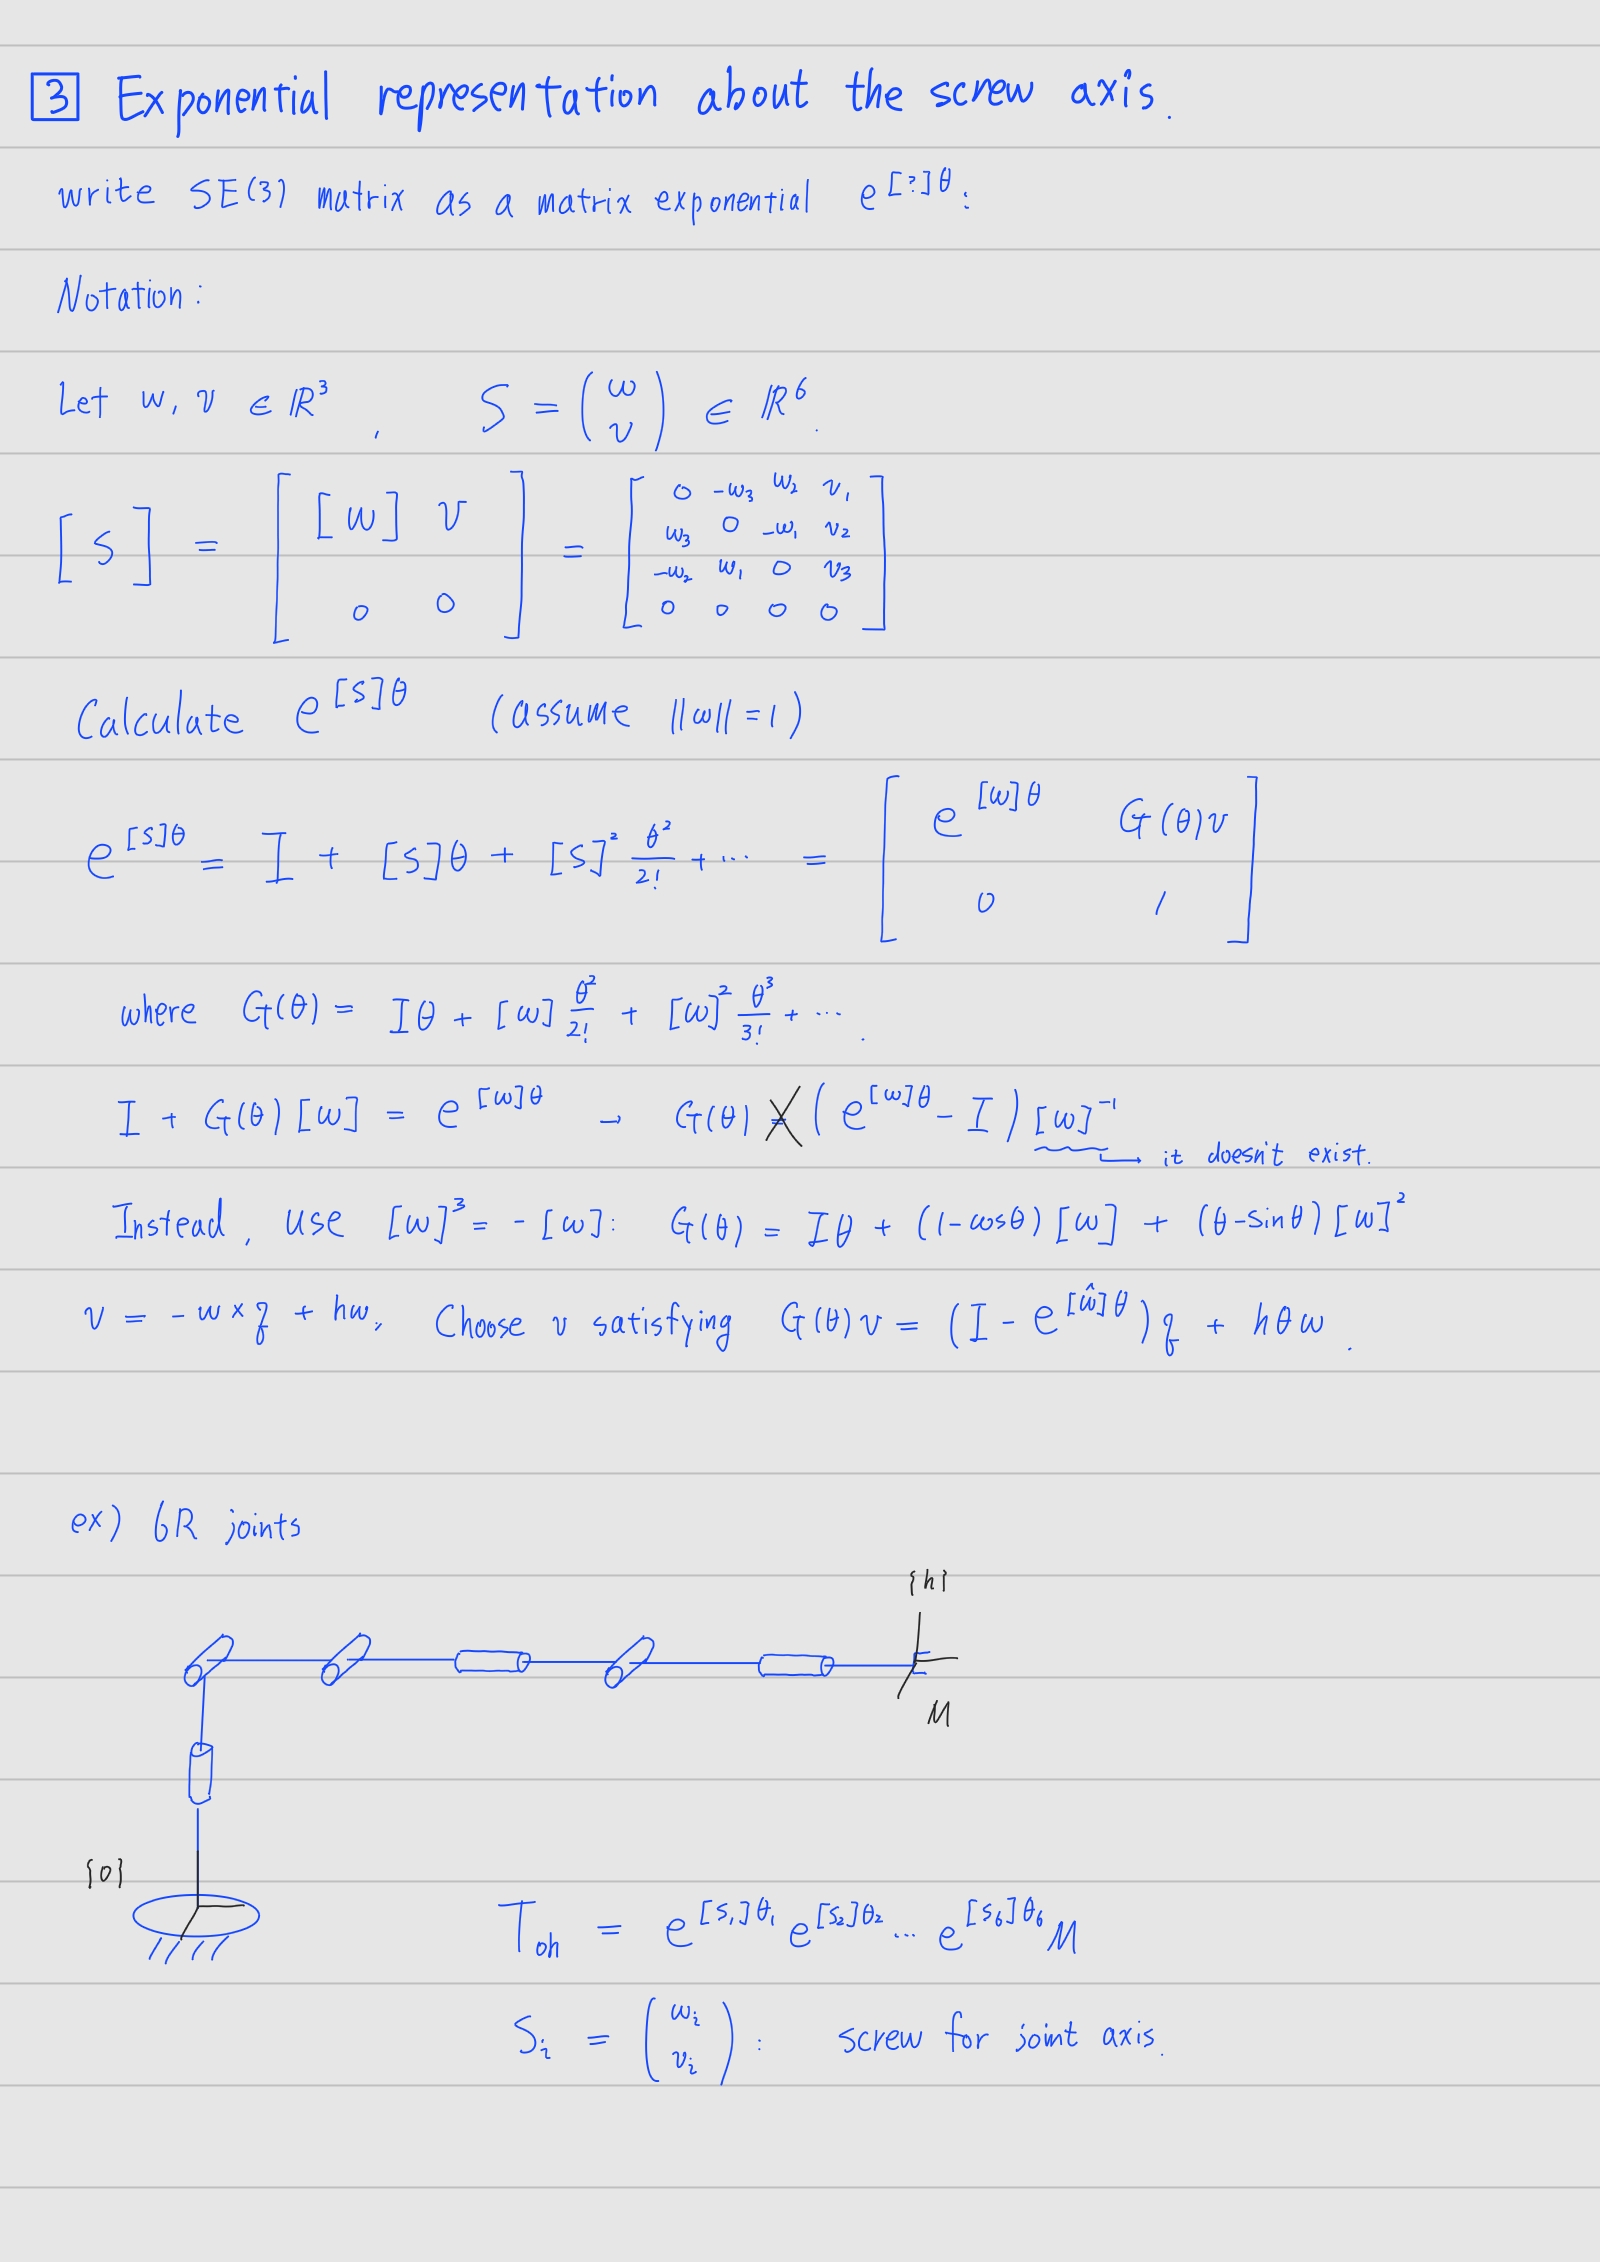 3 Exponential representation about the screw axis.
write SE(3) matrix as a matrix exponential e^{[?]θ}:
Notation:
Let w, v ∈ ℝ³, S = (ω v) ∈ ℝ⁶.
[S] = [[w] v; 0 0] = [0 -w₃ w₂ v₁; w₃ 0 -w₁ v₂; -w₂ w₁ 0 v₃; 0 0 0 0]
Calculate e^{[S]θ} (assume ||ω|| = 1)
e^{[S]θ} = I + [S]θ + [S]² θ²/2! + ⋯ = [e^{[ω]θ} G(θ)v; 0 1]
where G(θ) = Iθ + [w] θ²/2! + [w]² θ³/3! + ⋯.
I + G(θ)[w] = e^{[w]θ} → G(θ) = (e^{[w]θ} - I)[w]⁻¹
it doesn't exist.
Instead, use [w]³ = -[w]: G(θ) = Iθ + (1-cosθ)[w] + (θ-sinθ)[w]²
v = -w×q + hw, Choose v satisfying G(θ)v = (I - e^{[ŵ]θ})q + hθw.
ex) 6R joints
{h}
M
{0}
T_{oh} = e^{[S₁]θ₁} e^{[S₂]θ₂} ⋯ e^{[S₆]θ₆} M
S_i = (ω_i v_i): screw for joint axis.